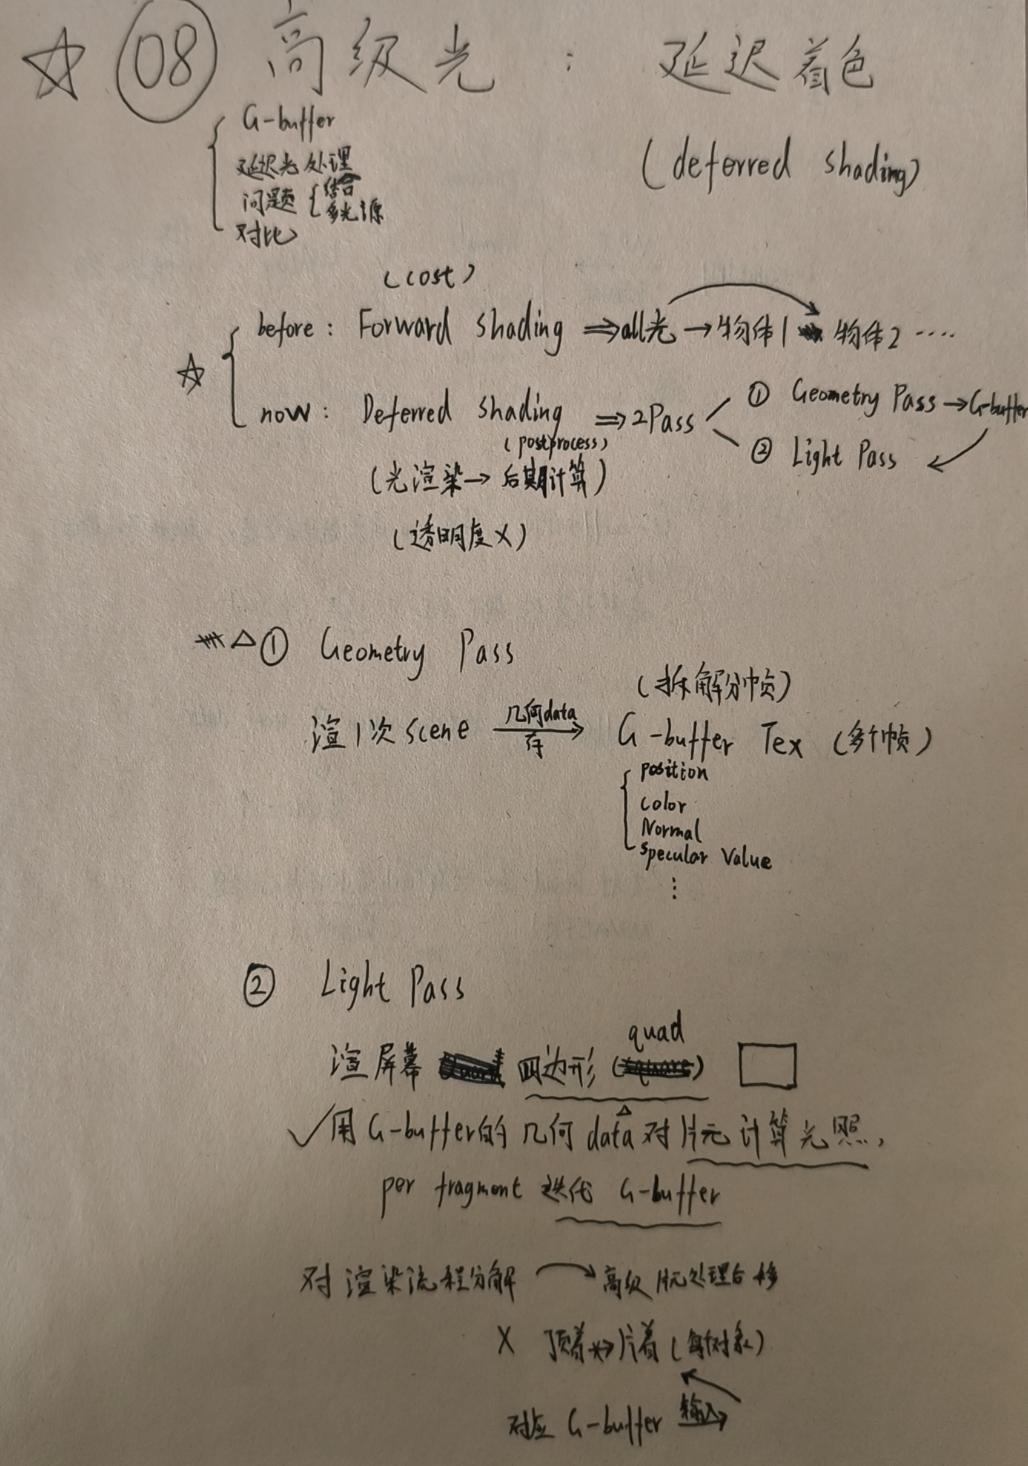 ☆ 08 高级光 : 延迟着色
(deferred shading)
G-buffer
延迟光处理
问题 { 结合
多光源
对比
(cost)
before: Forward shading ⇒ all光 → 物体1 物体2 ····
☆
now: Deferred shading ⇒ 2Pass
① Geometry Pass → G-buffer
② Light Pass
(postprocess)
(光渲染→后期计算)
(透明度×)
△① Geometry Pass
(拆解分帧)
渲1次scene 几何data 存 → G-buffer Tex (多个帧)
position
color
Normal
Specular Value
⋮
② Light Pass
渲屏幕 四边形 (quad)
✓用G-buffer的几何data对片元计算光照,
per fragment 迭代 G-buffer
对渲染流程分解 → 高级片元处理后移
× 顶着→片着(每对象)
对应 G-buffer 输入